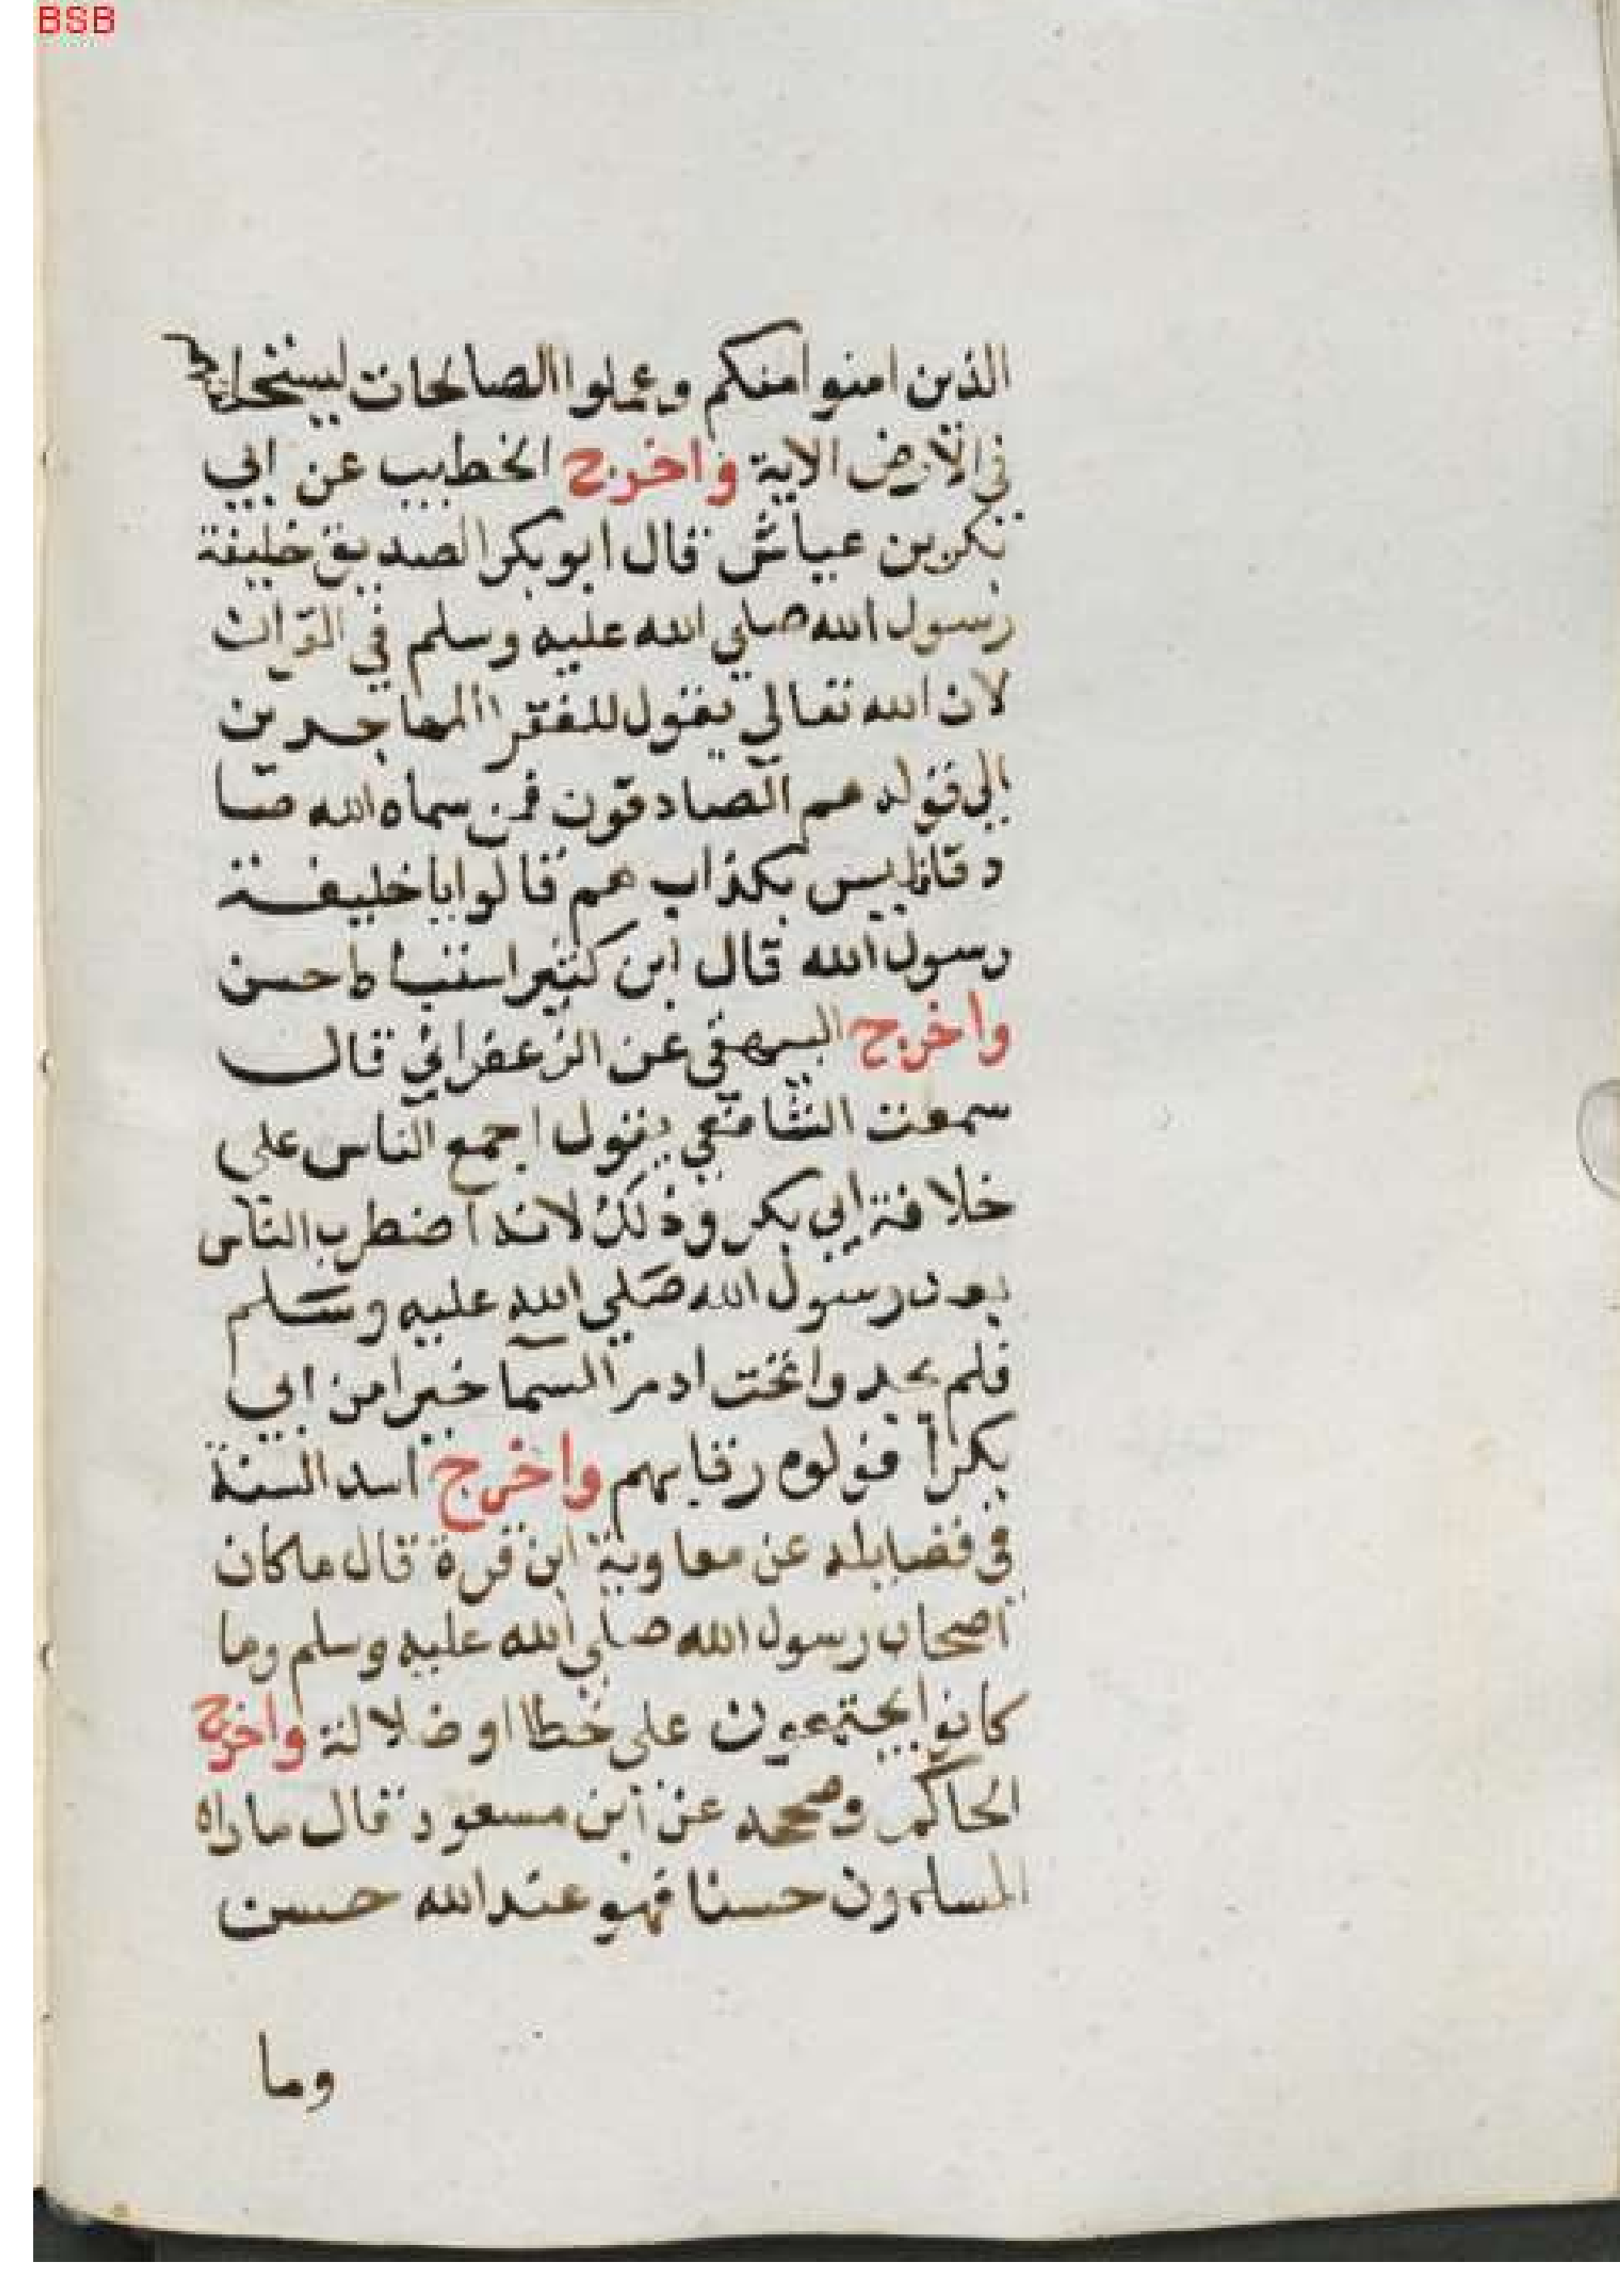 BSB
الذين امنوا منكم وعملوا الصالحات ليستخلفنهم
في الارض الاية واخرج الخطيب عن ابي
بكر بن عياش قال ابو بكر الصديق خليفة
رسول الله صلي الله عليه وسلم في القران
لان الله تعالي يقول للفقرا المهاجرين
الي قوله هم الصادقون فمن سماه الله صا
دقا فليس بكذاب هم قالوا يا خليفة
رسول الله قال ابن كثير استنباط حسن
واخرج البيهقي عن الزعفراني قال
سمعت الشافعي يقول اجمع الناس على
خلافة ابي بكر وذلك لانه اضطرب الناس
بعد رسول الله صلي الله عليه وسلم
فلم يجدوا تحت اديم السما خيرا من ابي
بكر فولوه رقابهم واخرج اسد السنة
في فضايله عن معاوية ابن قرة قال ما كان
اصحاب رسول الله صلي الله عليه وسلم وما
كانوا يجتمعون على خطا او ضلالة واخرج
الحاكم وصححه عن ابن مسعود قال ما راه
المسلمون حسنا فهو عند الله حسن
وما